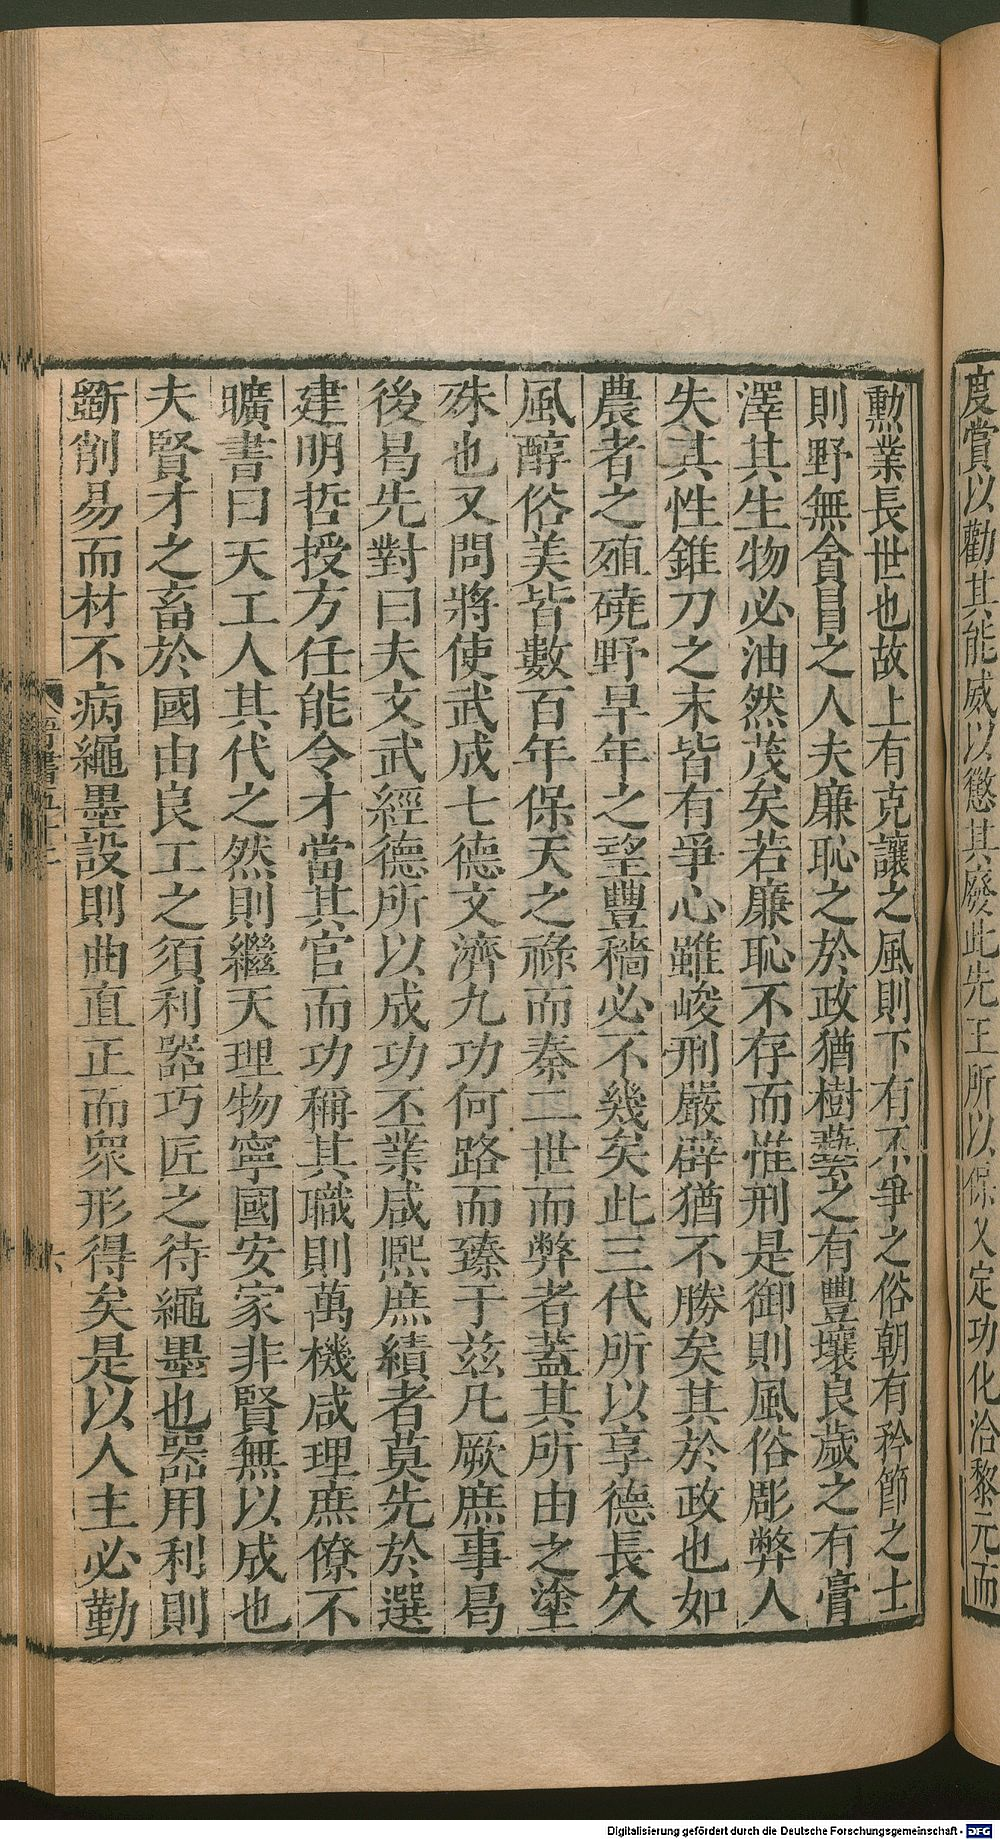 度賞以勸其能威以懲其廢此先王所以保乂定功化洽黎元而
勲業長世也故上有克讓之風則下有不爭之俗朝有矜節之士
則野無貪冒之人夫廉恥之於政猶樹藝之有豐壤良歲之有膏
澤其生物必油然茂矣若廉恥不存而惟刑是御則風俗彫弊人
失其性錐刀之末皆有爭心雖峻刑嚴辟猶不勝矣其於政也如
農者之殖磽野旱年之望豐穡必不幾矣此三代所以享德長久
風醇俗美皆數百年保天之祿而秦二世而弊者蓋其所由之塗
殊也又問將使武成七德文濟九功何路而臻于兹凡厥庶事曷
後曷先對曰夫文武經德所以成功丕業咸熈庶績者莫先於選
建明哲授方任能令才當其官而功稱其職則萬機咸理庶僚不
曠書曰天工人其代之然則繼天理物寧國安家非賢無以成也
夫賢才之畜於國由良工之須利器巧匠之待繩墨也器用利則
斲削易而材不病繩墨設則曲直正而衆形得矣是以人主必勤
晉書五十二
六
Digitalisierung gefördert durch die Deutsche Forschungsgemeinschaft - DFG